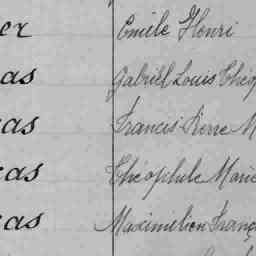 er Emile Henri
as Gabriel Louis Théop
cas Francis Pierre M
cas Théophile Marie
cas Maximilien Franç